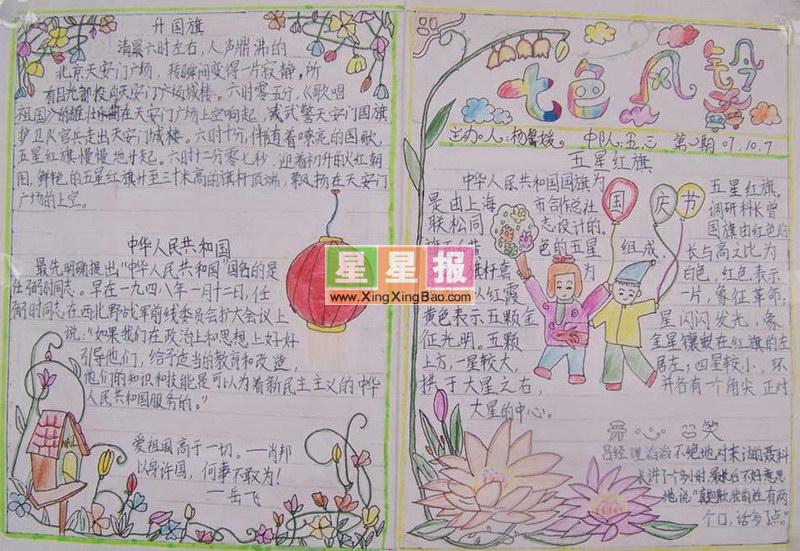 升国旗
清晨六时左右，人声鼎沸的
北京天安门广场，转瞬间变得一片寂静。所
有目光都投向天安门广场城楼。六时零五分，《歌唱
祖国》的雄壮乐曲在天安门广场上空响起，武警天安门国旗
护卫队官兵走出天安门城楼。六时十分，伴随着嘹亮的国歌，
五星红旗慢慢地升起。六时十二分零七秒，迎着初升的火红朝
阳，鲜艳的五星红旗升至三十米高的旗杆顶端，飘扬在天安门
广场的上空。
中华人民共和国
最先明确提出“中华人民共和国”国名的是
任弼时同志。早在一九四八年一月十二日，任
弼时同志在西北野战军前线委员会扩大会议上
说：“如果我们在政治上和思想上好好
引导他们，给予适当的教育和改造，
他们的知识和技能是可以为着新民主主义的中华
人民共和国服务的。”
爱祖国高于一切。—肖邦
以身许国，何事不敢为！
—岳飞
七色风铃
主办人：杨馨媛 中队：五.三 第○期 07.10.7
五星红旗
中华人民共和国国旗为 五星红旗。
是由上海 市合作总社 调研科长曾
联松同 志设计的。 国旗由红色
色的五星 组成， 长与高之比为
旗杆套 为 白色，红色表示
以红霞 一片，象征革命，
黄色表示五颗金 星闪闪发光，象
征光明。五颗 金星镶嵌在红旗的左
上方，一星较大， 居左；四星较小，环
拱于大星之右， 并各有一个角尖正对
大星的中心。
国庆节
笑
吕经理滔滔不绝地对来访的聂科
长讲了个多小时，最后不好意思
地说“真抱歉，我的姓有两
个口，话多了点。”
星星报
www.XingXingBao.com